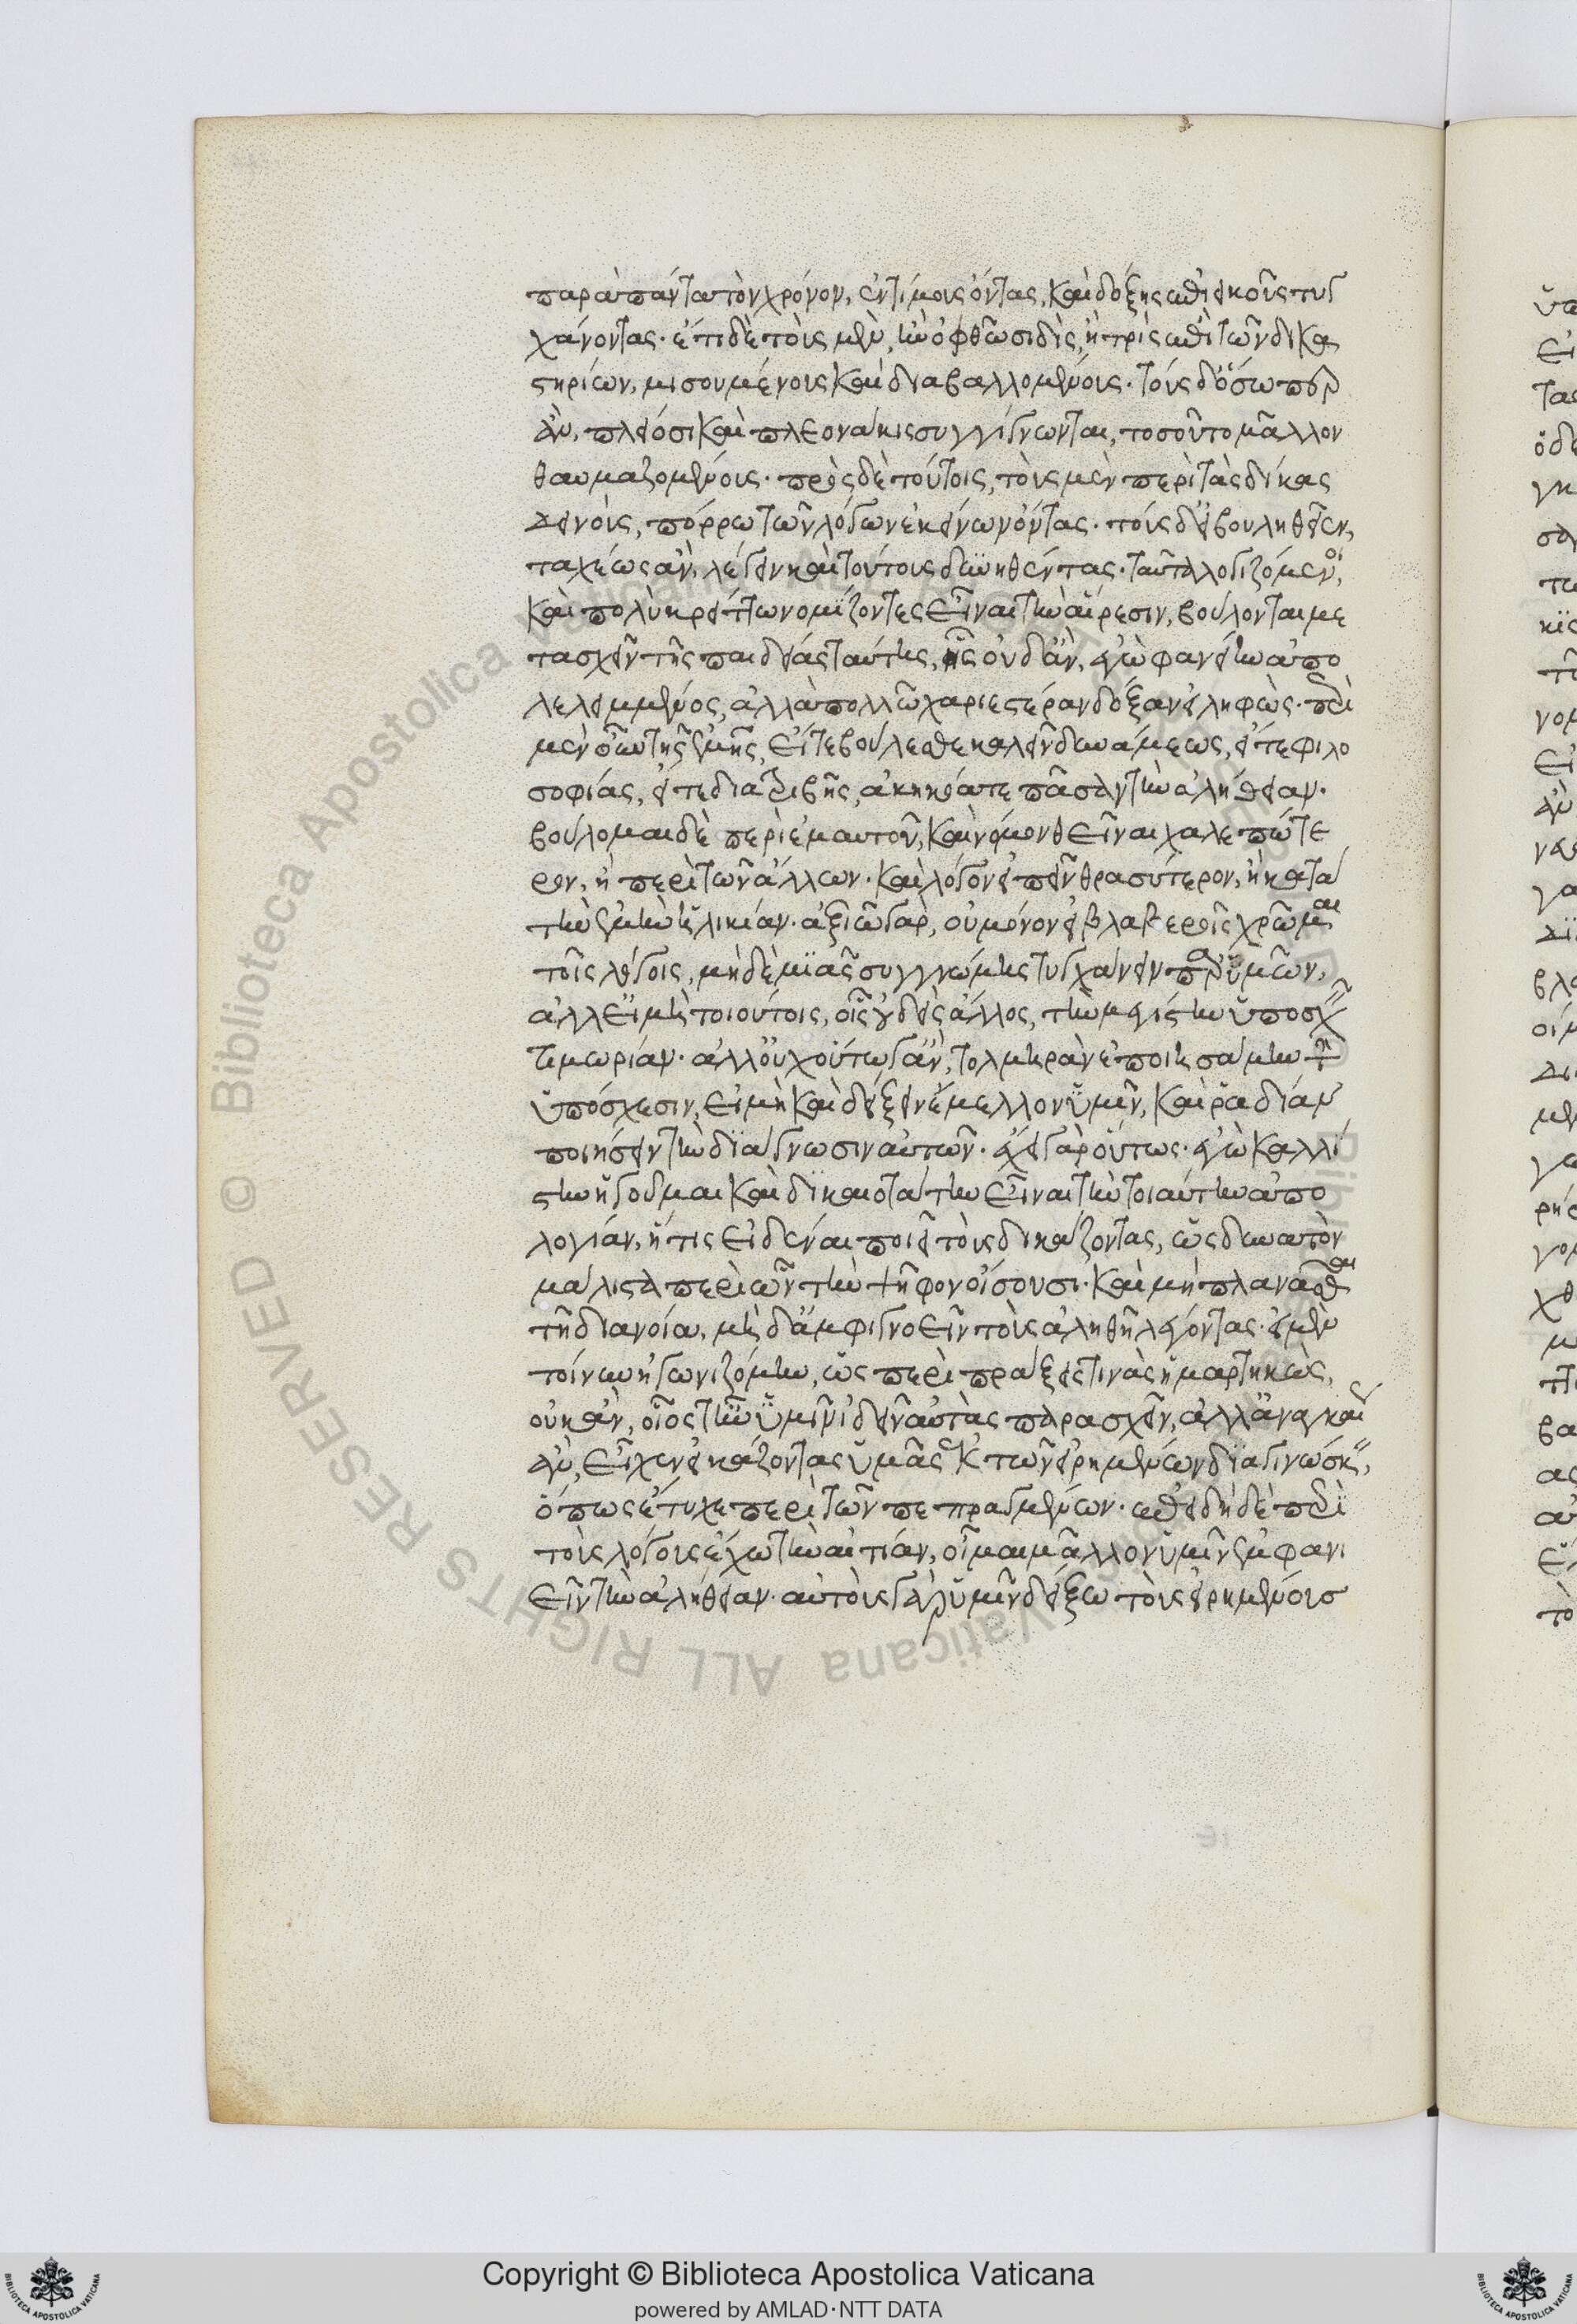 παρὰ πάντα τὸν χρόνον, ἐντίμους ὄντας, καὶ δόξης ἐπιεικοῦς τυγ
χάνοντας· ἔτι δὲ τοὺς μὲν, ἢν ὀφθῶσι δὶς, ἢ τρὶς ἐπὶ τῶν δικα
στηρίων, μισουμένους καὶ διαβαλλομένους. τοὺς δ' ὅσω περ
ἂν, πλείοσι καὶ πλεονάκις συγγίγνωνται, τοσοῦτο μᾶλλον
θαυμαζομένους. πρὸς δὲ τούτοις, τοὺς μὲν περὶ τὰς δίκας
δεινοὺς, πόρρω τῶν λόγων ἐκείνων ὄντας. τοὺς δ' εἰ βουληθεῖεν,
ταχέως ἂν, λέγειν καὶ τούτους δυνηθέντας. ταῦτα λογιζόμενοι,
καὶ πολὺ κρείττω νομίζοντες εἶναι τὴν αἵρεσιν, βούλονται με
τασχεῖν τῆς παιδείας ταύτης, ἧς οὐδ' ἂν, ἐγὼ φανείην ἀπο
λελειμμένος, ἀλλὰ πολλῶ χαριεστέραν δόξαν εἰληφώς. περὶ
μὲν οὖν τῆς ἐμῆς, εἴτε βούλεσθε καλεῖν δυνάμεως, εἴτε φιλο
σοφίας, εἴτε διατριβῆς, ἀκηκόατε πᾶσαν τὴν ἀλήθειαν.
βούλομαι δὲ περὶ ἐμαυτοῦ, καὶ νόμον θεῖναι χαλεπώτε
ρον, ἢ περὶ τῶν ἄλλων. καὶ λόγον εἰπεῖν θρασύτερον, ἢ κατὰ
τὴν ἐμὴν ἡλικίαν. ἀξιῶ γὰρ, οὐ μόνον εἰ βλαβεροῖς χρῶμαι
τοῖς λόγοις, μηδεμιᾶς συγγνώμης τυγχάνειν παρ' ὑμῶν,
ἀλλ' εἰ μὴ τοιούτοις, οἵοις οὐδεὶς ἄλλος, τὴν μεγίστην ὑποσχεῖν
τιμωρίαν. ἀλλ' οὐχ οὕτω γ' ἂν, τολμηρὰν ἐποιησάμην τὴν
ὑπόσχεσιν, εἰ μὴ καὶ δείξειν ἔμελλον ὑμῖν, καὶ ῥαδίαν
ποιήσειν τὴν διάγνωσιν αὐτῶν. ἔχει γὰρ οὕτως. ἐγὼ καλλί
στην ἡγοῦμαι καὶ δικαιοτάτην εἶναι τὴν τοιαύτην ἀπο
λογίαν, ἥτις εἰδέναι ποιεῖ τοὺς δικάζοντας, ὡς δυνατὸν
μάλιστα περὶ ὧν τὴν ψῆφον οἴσουσι. καὶ μὴ πλανᾶσθαι
τῆ διανοία, μὴ δ' ἀμφιγνοεῖν τοὺς ἀληθῆ λέγοντας. εἰ μὲν
τοίνυν ἠγωνιζόμην, ὡς περὶ πράξεις τινὰς ἡμαρτηκὼς,
οὐκ ἂν, οἷός τ' ἦν ὑμῖν ἰδεῖν αὐτὰς παρασχεῖν, ἀλλ' ἀναγκαίως
ἂν, εἶχεν εἰκάζοντας ὑμᾶς ἐκ τῶν εἰρημένων διαγινώσκειν,
ὅπως ἔτυχε περὶ τῶν πεπραγμένων. ἐπειδὴ δὲ περὶ
τοὺς λόγους ἔχω τὴν αἰτίαν, οἶμαι μᾶλλον ὑμῖν ἐμφανι
εῖν τὴν ἀλήθειαν. αὐτοὺς γὰρ ὑμῖν δείξω τοὺς εἰρημένους
Copyright © Biblioteca Apostolica Vaticana
powered by AMLAD·NTT DATA